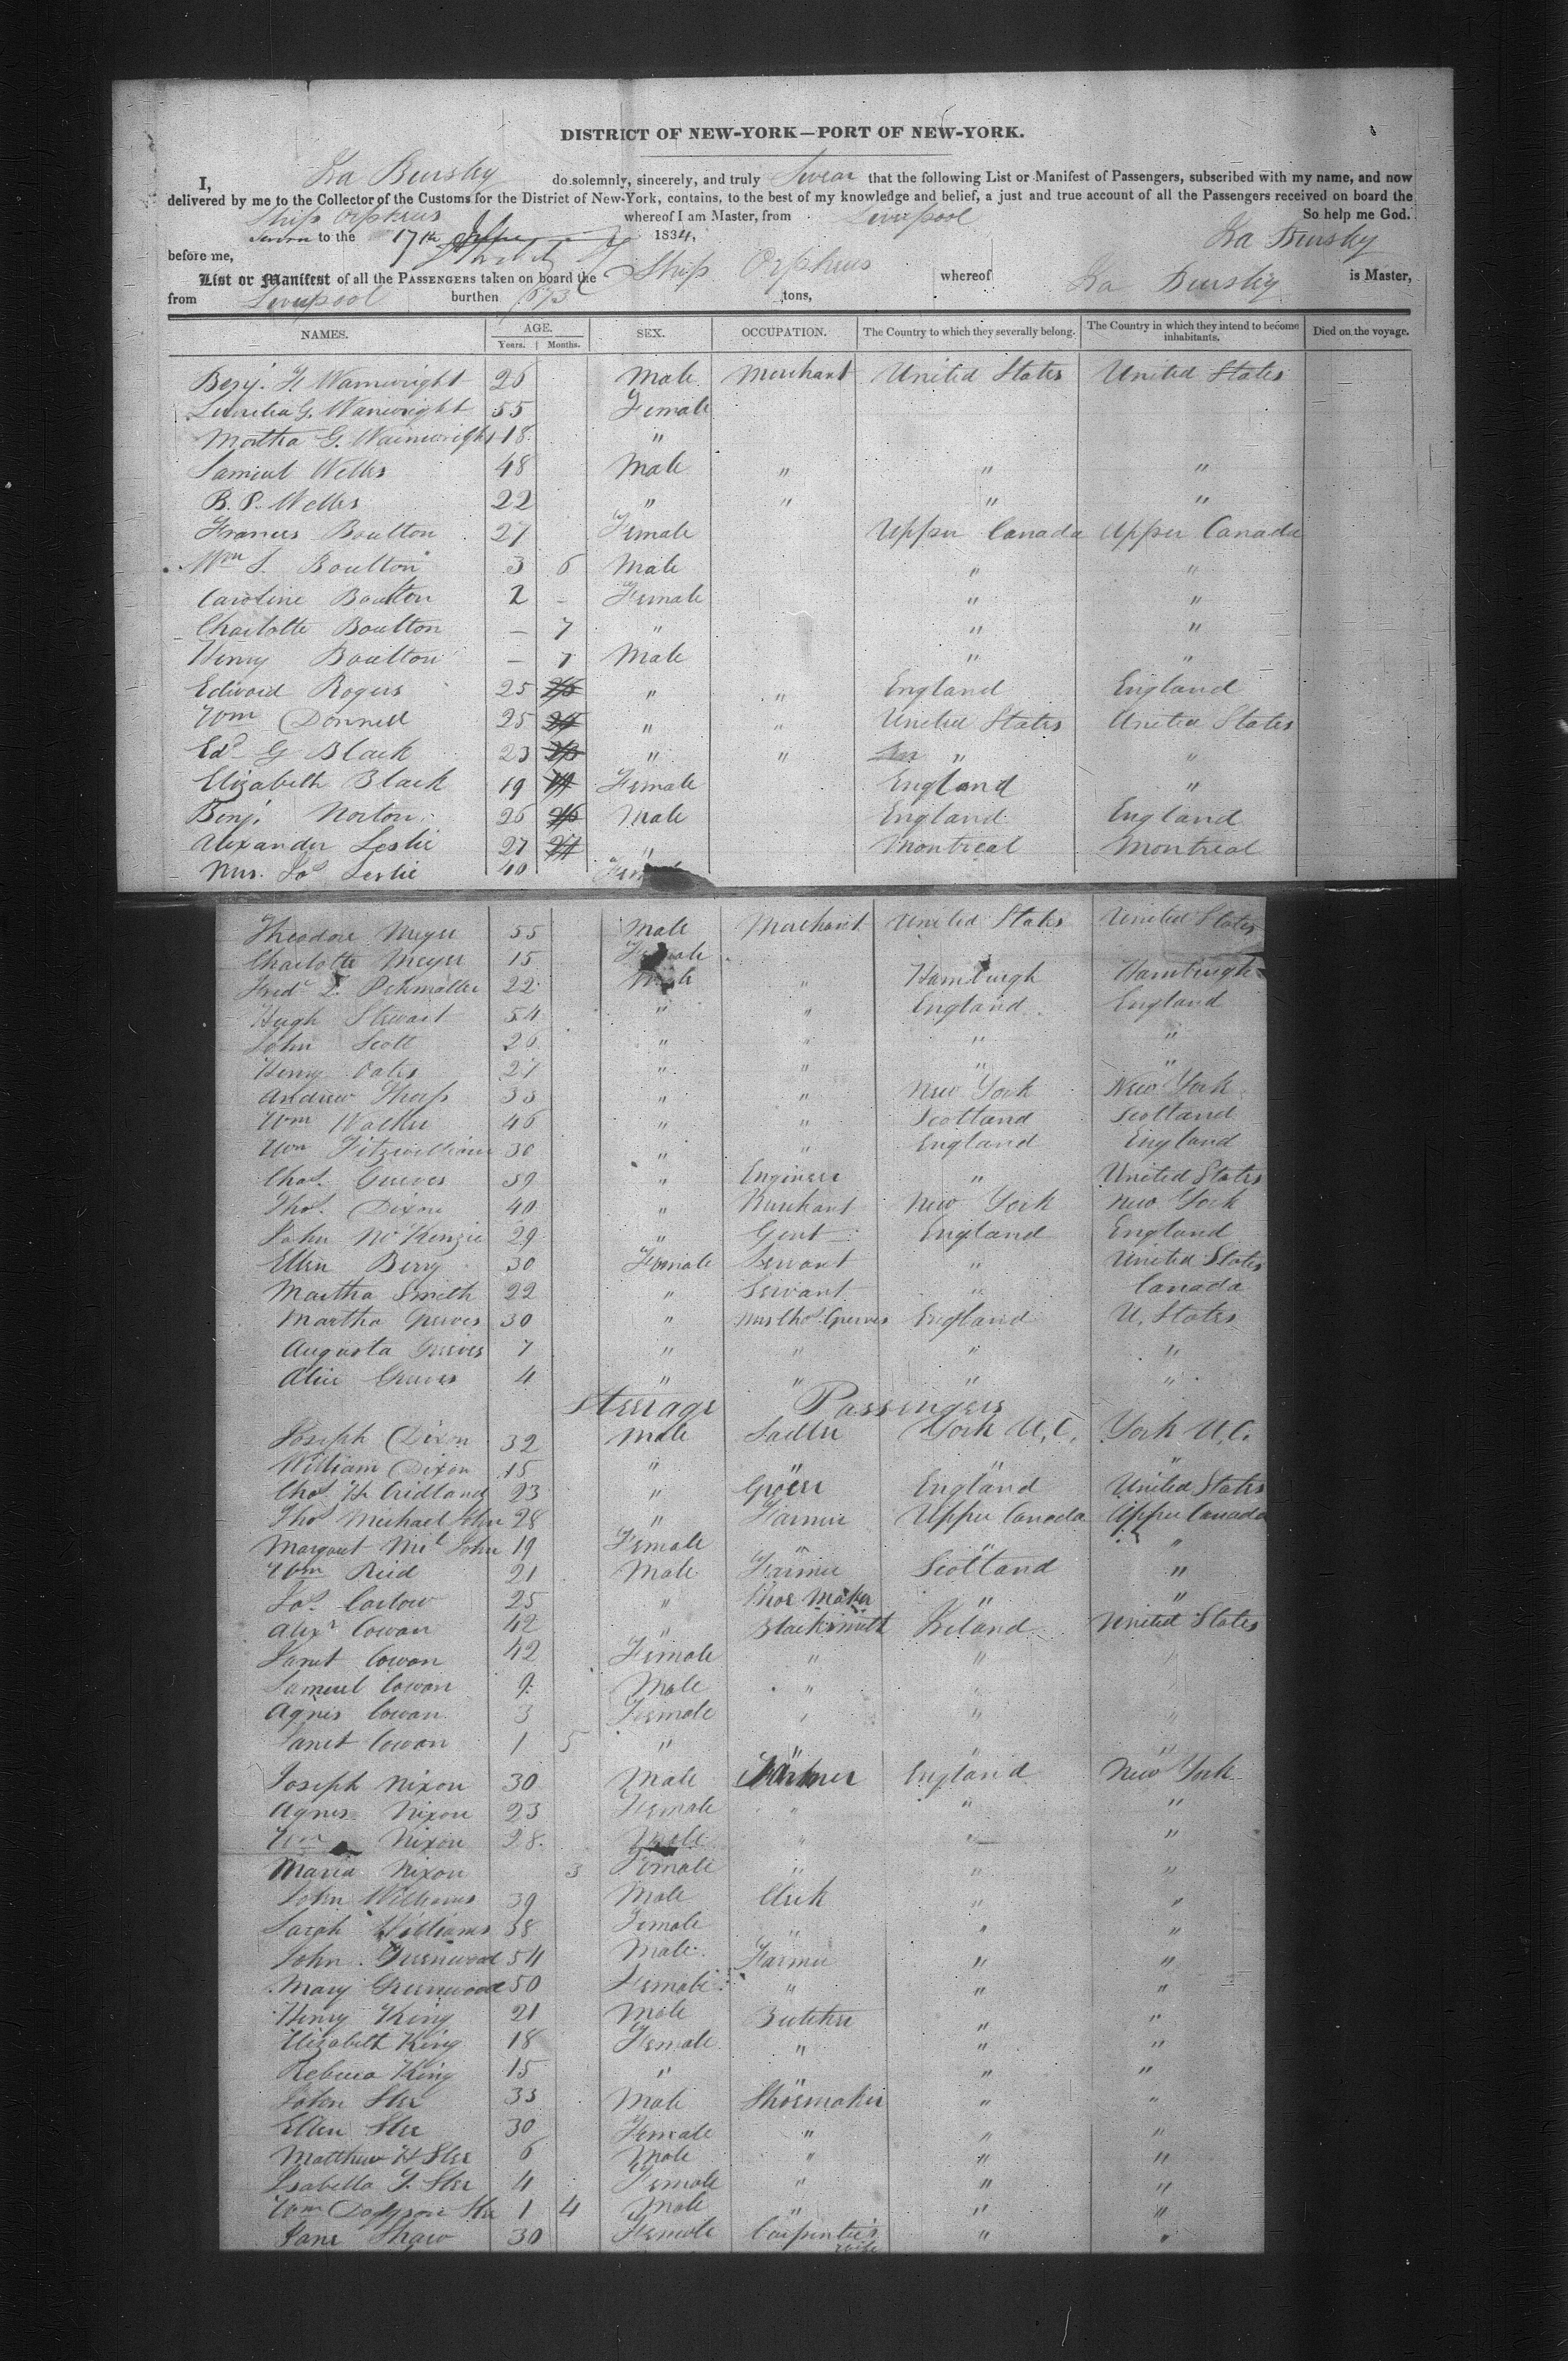 DISTRICT OF NEW-YORK—PORT OF NEW-YORK.
I, Ira Bursley do solemnly, sincerely, and truly Swear that the following List or Manifest of Passengers, subscribed with my name, and now
delivered by me to the Collector of the Customs for the District of New-York, contains, to the best of my knowledge and belief, a just and true account of all the Passengers received on board the
Ship Orpheus whereof I am Master, from Liverpool So help me God.
Sworn to the 17th 1834, Ira Bursley
before me,
List or Manifest of all the PASSENGERS taken on board the Ship Orpheus whereof Ira Bursley is Master,
from Liverpool burthen 573 tons,
NAMES. AGE. SEX. OCCUPATION. The Country to which they severally belong. The Country in which they intend to become inhabitants. Died on the voyage.
Years. Months.
Benj. F. Wainwright 26 Male Merchant United States United States
Lucretia G. Wainwright 55 Female
Martha G. Wainwright 18 "
Samuel Welles 48 Male " " "
B. P. Welles 22 " " " "
Frances Boulton 27 Female Upper Canada Upper Canada
Wm S. Boulton 3 6 Male " "
Caroline Boulton 2 - Female " "
Charlotte Boulton — 7 " " "
Henry Boulton — 7 Male " "
Edward Rogers 25 " " England England
Wm Donnell 25 " " United States United States
Ed. G Black 23 " " " "
Elizabeth Black 19 Female England "
Benj. Norton 26 Male England England
Alexander Leslie 27 " Montreal Montreal
Mrs. Jas Leslie 40 Female
Theodore Meyer 55 Male Merchant United States United States
Charlotte Meyer 15 Female
Fredk L. Pehmoller 22 Male " Hamburgh Hamburgh
Hugh Stewart 54 " " England England
John Scott 26 " " " "
Henry Oates 27 " " " "
Andrew Tharp 33 " " New York New York
Wm Walker 46 " " Scotland Scotland
Wm Fitzwilliam 30 " " England England
Chas. Greeves 39 " Engineer " United States
Thos. Dixon 40 " Merchant New York New York
John McKenzie 29 " Gent England England
Ellen Berry 30 Female Servant " United States
Martha Smith 22 " Servant " Canada
Martha Greeves 30 " Mrs Chs Greeves England U. States
Augusta Greeves 7 " " " "
Alice Greeves 4 " " " "
Steerage Passengers
Joseph Dixon 32 Male Sadler York U.C. York U.C.
William Dixon 15 " " " "
Chas. H. Cridland 23 " Grocer England United States
Thos Michael John 28 " Farmer Upper Canada Upper Canada
Margaret Mcl John 19 Female " " "
Wm Reid 21 Male Farmer Scotland "
Jas. Carlow 25 " Shoe Maker " "
Alexr Cowan 42 " Blacksmith Ireland United States
Janet Cowan 42 Female " " "
Samuel Cowan 9 Male " " "
Agnes Cowan 3 Female " " "
Janet Cowan 1 5 " " " "
Joseph Nixon 30 Male Farmer England New York
Agnes Nixon 23 Female " " "
Wm Nixon 28 Male " " "
Maria Nixon 3 Female " " "
John Williams 39 Male Clerk " "
Sarah Williams 38 Female " " "
John Greenwood 54 Male Farmer " "
Mary Greenwood 50 Female " " "
Henry King 21 Male Butcher " "
Elizabeth King 18 Female " " "
Rebecca King 15 " " "
John Ster 33 Male Shoemaker " "
Ellen Ster 30 Female " " "
Matthew H Ster 6 Male " " "
Isabella G. Ster 4 Female " " "
Wm Dodgson Ster 1 4 Male " " "
Jane Shaw 30 Female Carpenter's wife " "